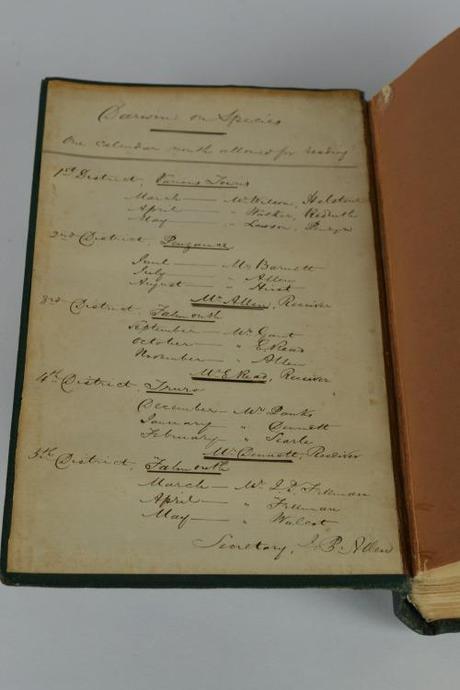 Darwin on Species
One calendar month allowed for reading
1st District, Various Towns
March — Mr Wilson, Helston
April — " Walker, Redruth
May — " Lawson, Penryn
2nd District, Penzance
June — Mr Barnett
July — " Allen
August — " Hirst
Mr Allen, Receiver
3rd District, Falmouth
September — Mr Gant
October — " E Read
November — " Allen
Mr E Read, Receiver
4th District, Truro
December — Mr Panks
January — " Dennett
February — " Searle
Mr Dennett, Receiver
5th District, Falmouth
March — Mr Freeman
April — " Freeman
May — " Walcot
Secretary, J. B. Allen